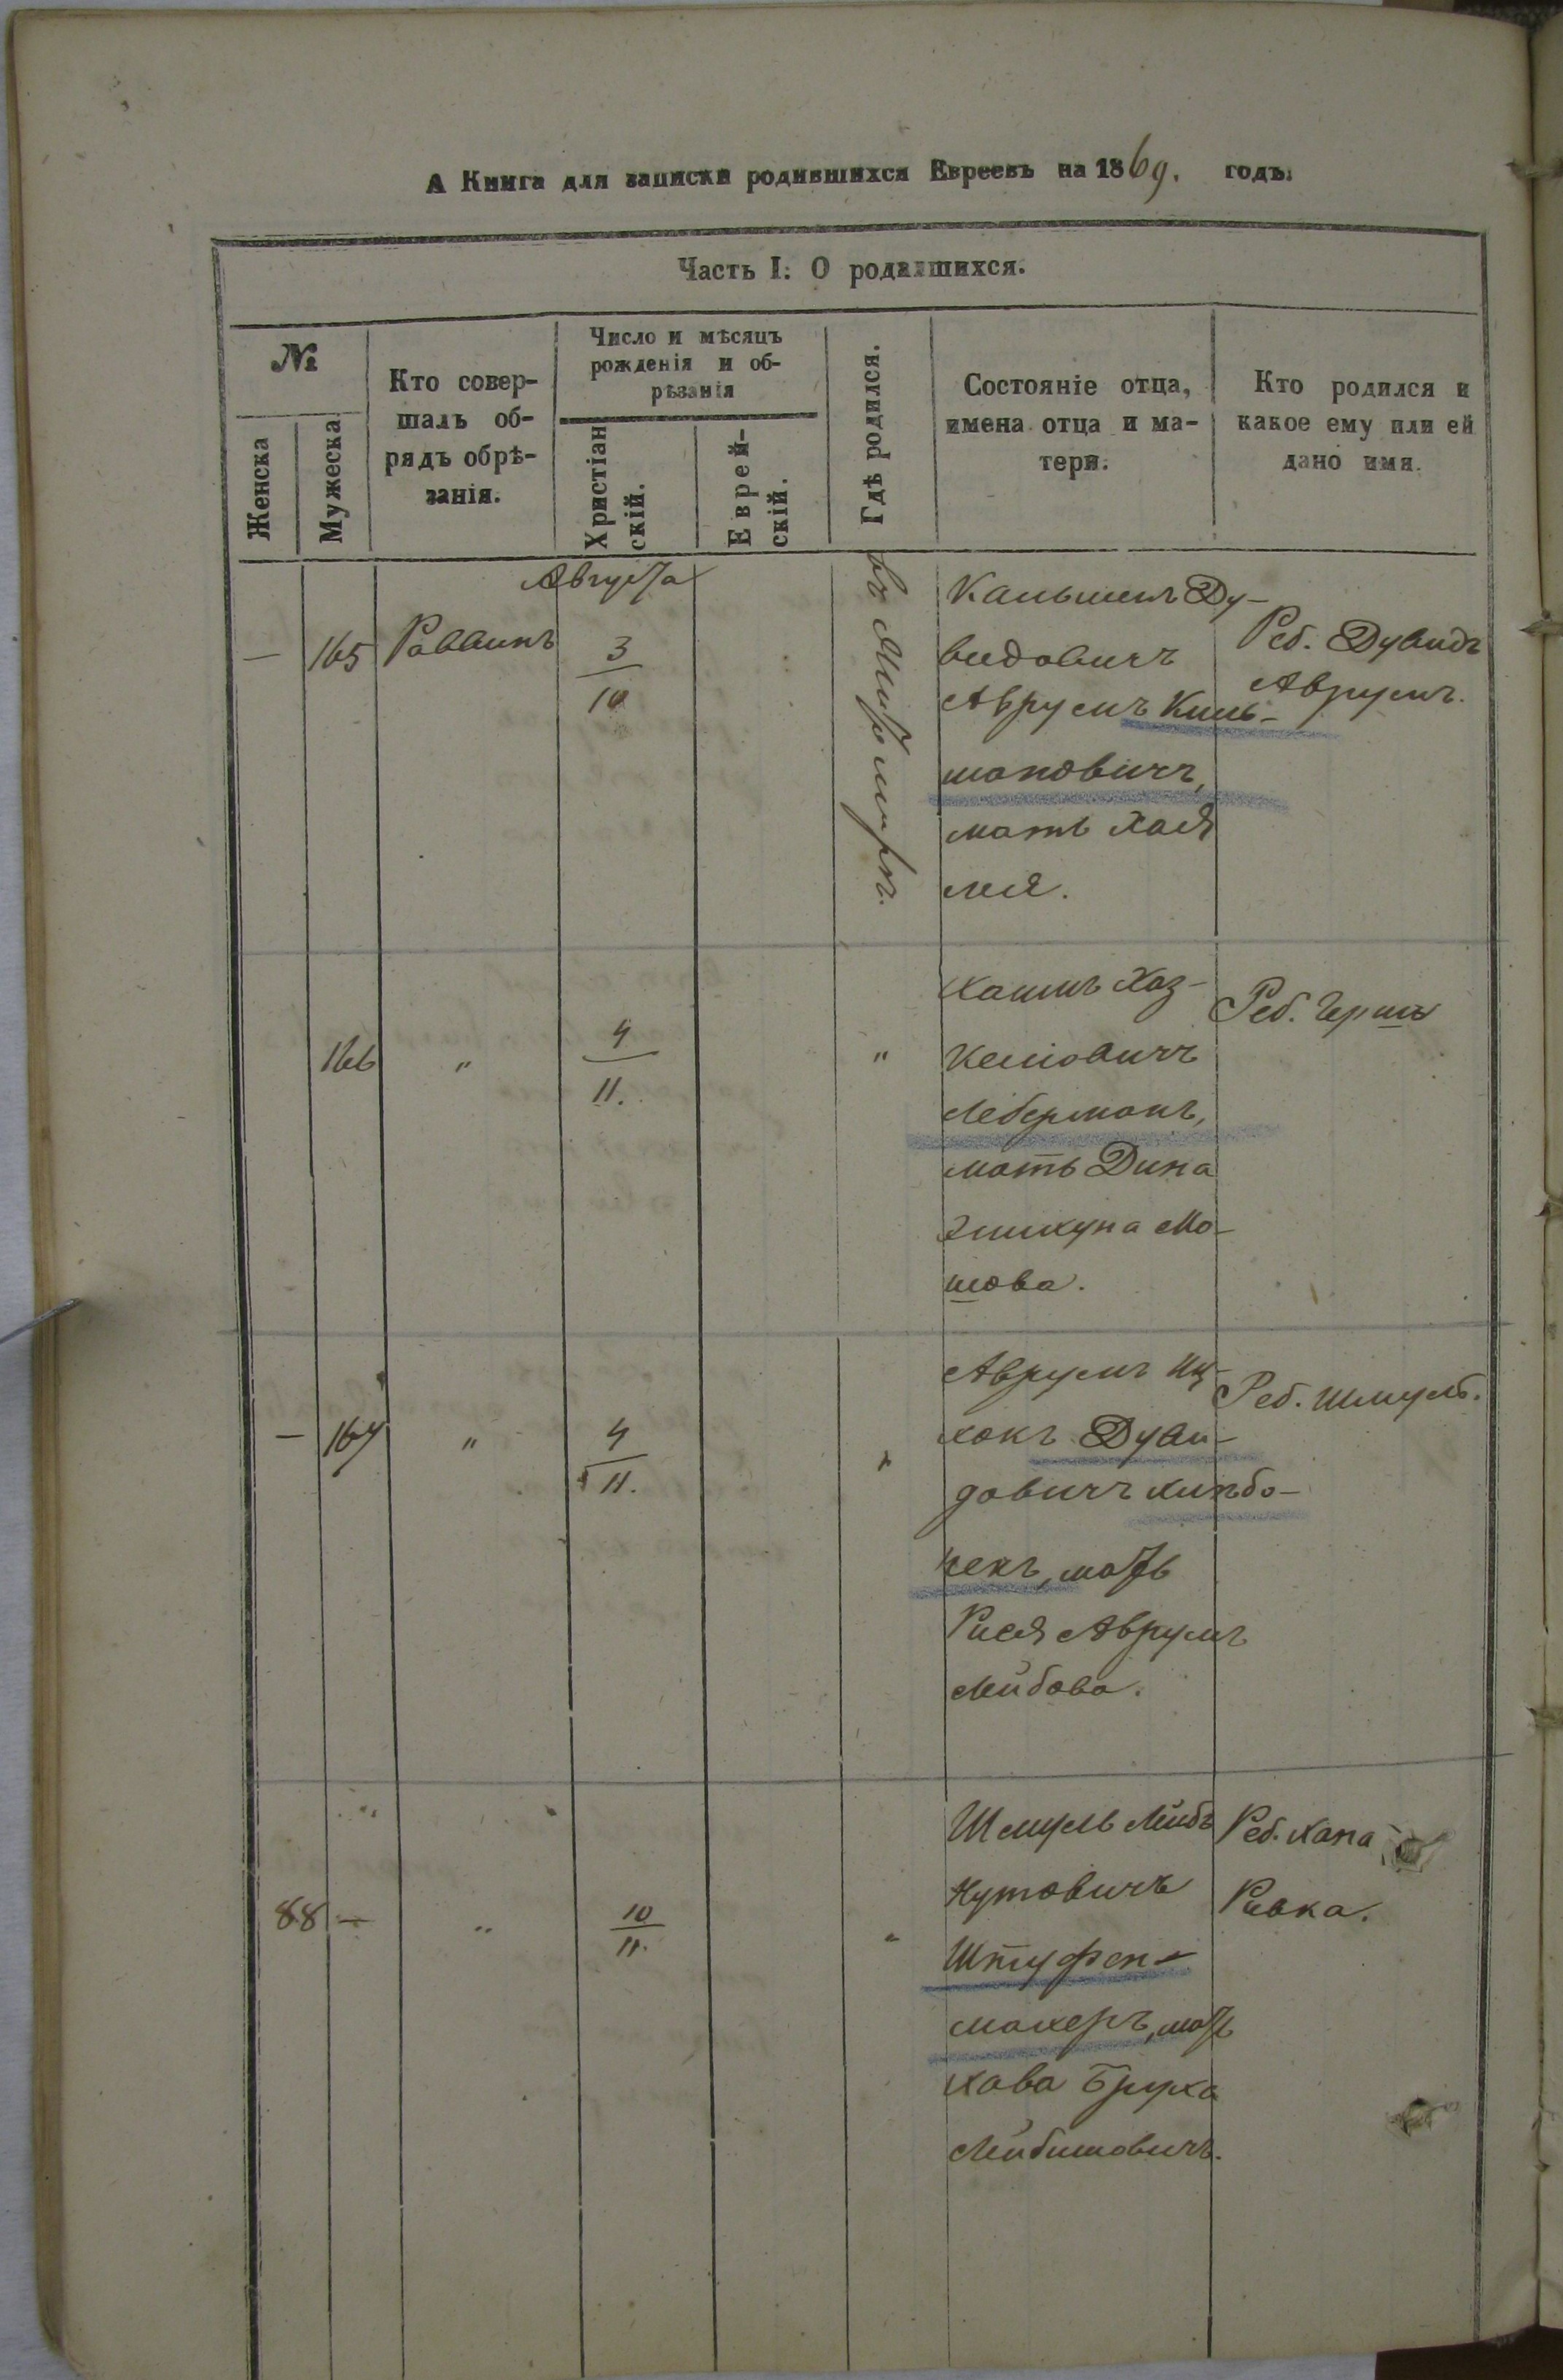 А Книга для записки родившихся Евреевъ на 1869. годъ.
Часть I: О родившихся.
№
Женска
Мужеска
Кто совер-
шалъ об-
рядъ обрѣ-
занія.
Число и мѣсяцъ
рожденія и об-
рѣзанія
Христіан
скій.
Еврей-
скій.
Гдѣ родился.
Состояніе отца,
имена отца и ма-
тери.
Кто родился и
какое ему или ей
дано имя.
Августа
— 165 Раввинъ
3
10
въ Житомирѣ.
Ду-
видовичъ
Аврумъ
мановичъ,
мать Хая
Лея.
Реб. Дувидъ
Аврумъ.
166 "
4
11.
"
Хаимъ Хаз-
келювичъ
Леберманъ,
мать Дина
Мо-
шова.
Реб. Гершъ
— 167 "
4
11.
"
Аврумъ Иц-
хокъ Дуви-
довичъ
мать
Рися Аврумъ
Лейбова.
Реб. Шмуль.
88 — "
10
11.
"
Шмуль Лейбъ
Нутовичъ
Штуфен-
махеръ, мать
Хава Бруха
Лейбишовичъ.
Реб. Хана
Ривка.